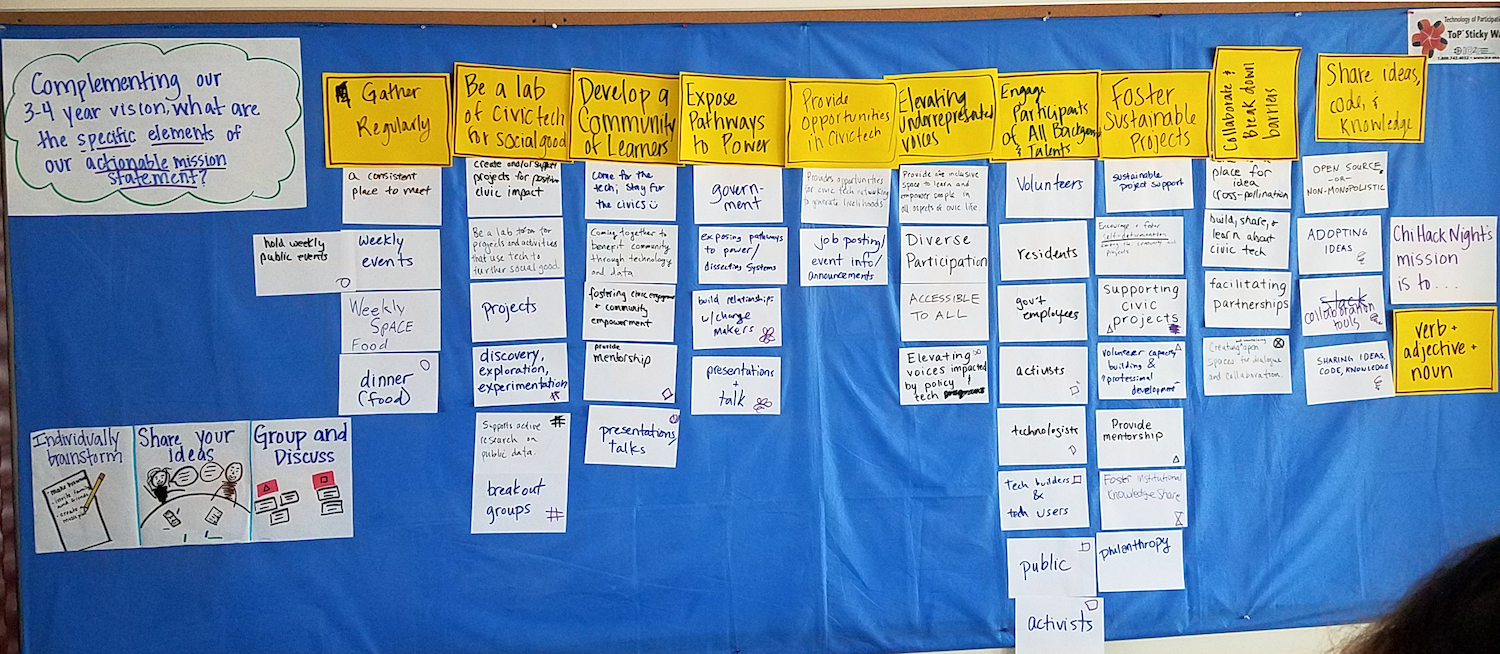 Complementing our
3-4 year vision, what are
the specific elements of
our actionable mission
statement?
Gather
Regularly
a consistent
place to meet
hold weekly
public events
weekly
events
Weekly
Space
Food
dinner
(food)
Be a lab
of Civic tech
for social good
create and/or support
projects for positive
civic impact
Be a lab for
projects and activities
that use tech to
further social good.
projects
discovery,
exploration,
experimentation
#
Supports active
research on
public data.
#
breakout
groups
#
Develop a
Community
of Learners
come for the
tech, stay for
the civics
Coming together to
benefit community
through technology
and data.
fostering civic engagement
+ community
empowerment
provide
mentorship
presentations/
talks
Expose
Pathways
to Power
govern-
ment
exposing pathways
to power/
dissecting systems
build relationships
w/change
makers
presentations
+
talk
Provide
opportunities
in Civictech
Provides opportunities
for civic tech networking
to generate livelihoods
job posting/
event info/
announcements
Elevating
underrepresented
voices
Provide an inclusive
space to learn and
empower people in
all aspects of civic life.
Diverse
Participation
ACCESSIBLE
TO ALL
Elevating
voices impacted
by policy &
tech
Engage
Participants
of All Backgrounds
& Talents
Volunteers
residents
gov't
employees
activists
technologists
tech builders
&
tech users
public
activists
Foster
Sustainable
Projects
sustainable
project support
Encourage + foster
self-determination
projects
Supporting
civic
projects
volunteer capacity
building &
professional
development
Provide
mentorship
Foster Institutional
Knowledge Share
philanthropy
Collaborate &
Break down
barriers
place for
idea
cross-pollination
build, share, &
learn about
civic tech
facilitating
partnerships
Creating open
spaces for dialogue
and collaboration.
Share ideas,
code, &
knowledge
OPEN SOURCE
-OR-
NON-MONOPOLISTIC
ADOPTING
IDEAS
slack
collaboration
tools
SHARING IDEAS,
CODE, KNOWLEDGE
Chi Hack Night's
mission
is to...
verb +
adjective +
noun
Individually
brainstorm
Share your
ideas
Group and
Discuss
Technology of Participa
ToP Sticky Wa